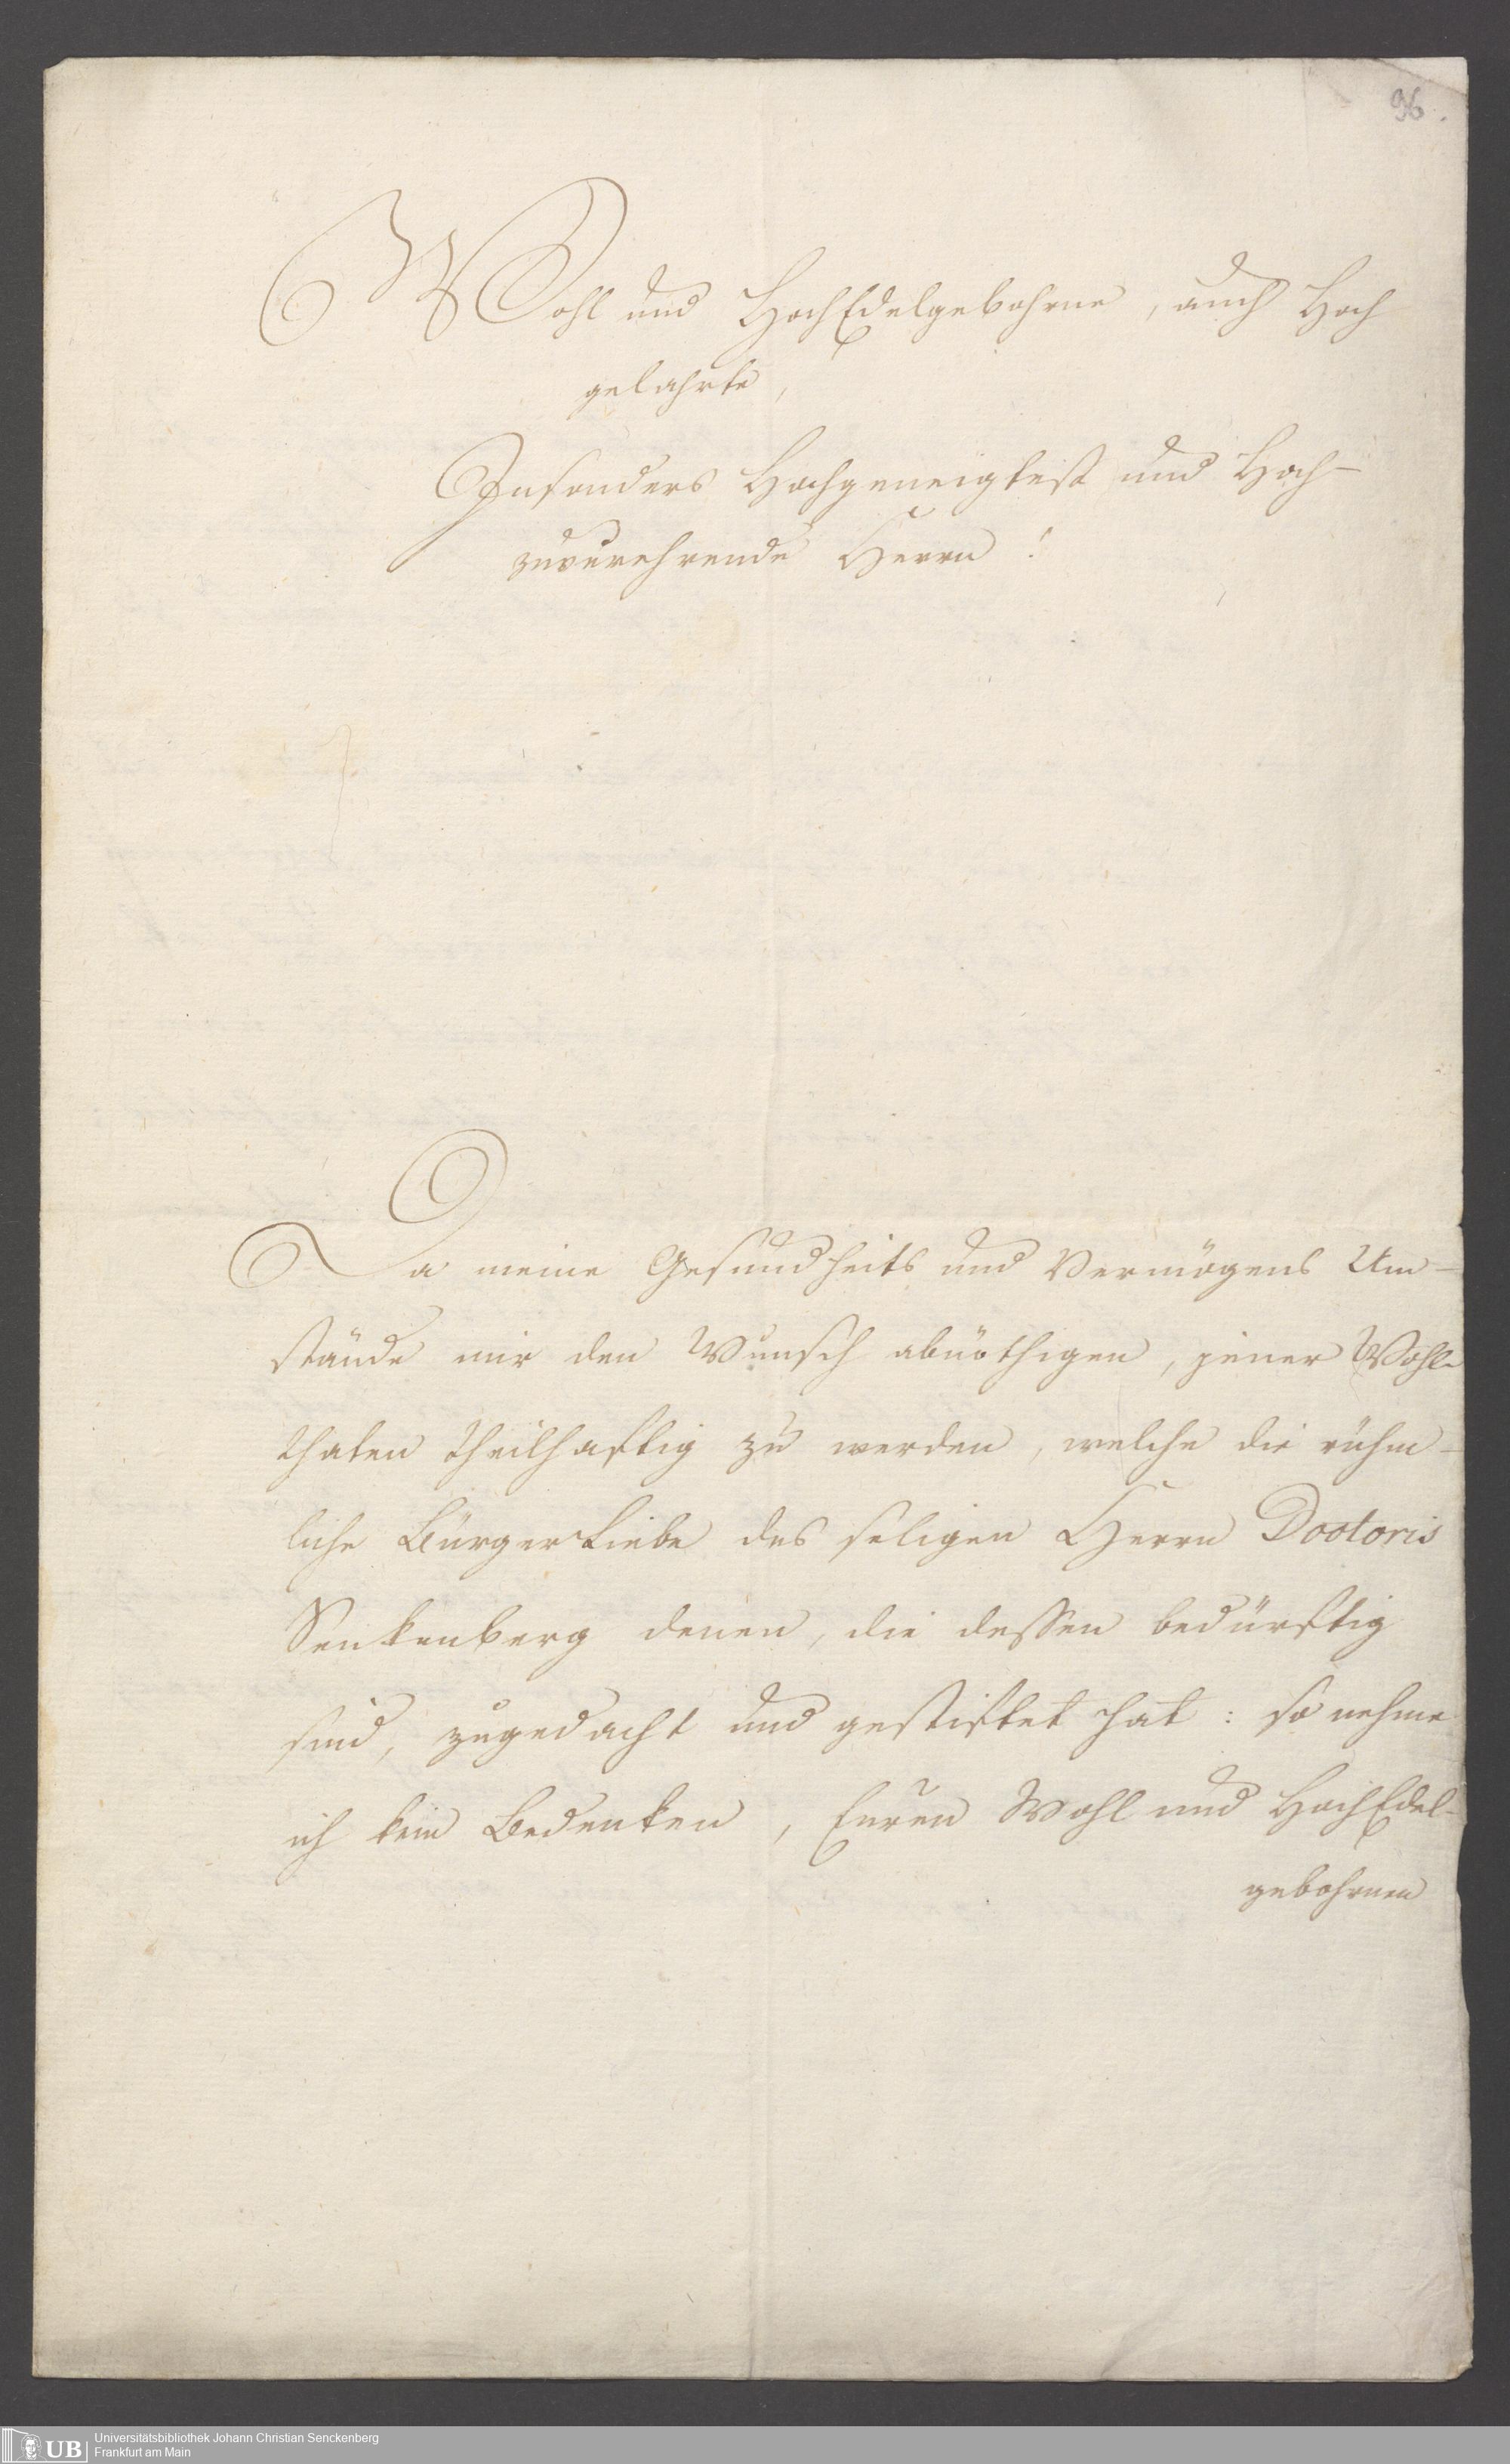 96.
Wohl und HochEdelgebohrne, auch Hoch
gelahrte,
Insonders Hochgeneigtest und Hoch-
zuverehrende Herrn!
Da meine Gesundheits und Vermögens Um-
stände mir den Wunsch abnöthigen, jener Wohl-
thaten theilhaftig zu werden, welche die rühm-
liche BürgerLiebe des seligen Herrn Doctoris
Senkenberg denen, die dessen bedürftig
sind, zugedacht und gestiftet hat: so nehme
ich kein Bedenken, Euren Wohl und HochEdel-
gebohrnen
UB
Universitätsbibliothek Johann Christian Senckenberg
Frankfurt am Main